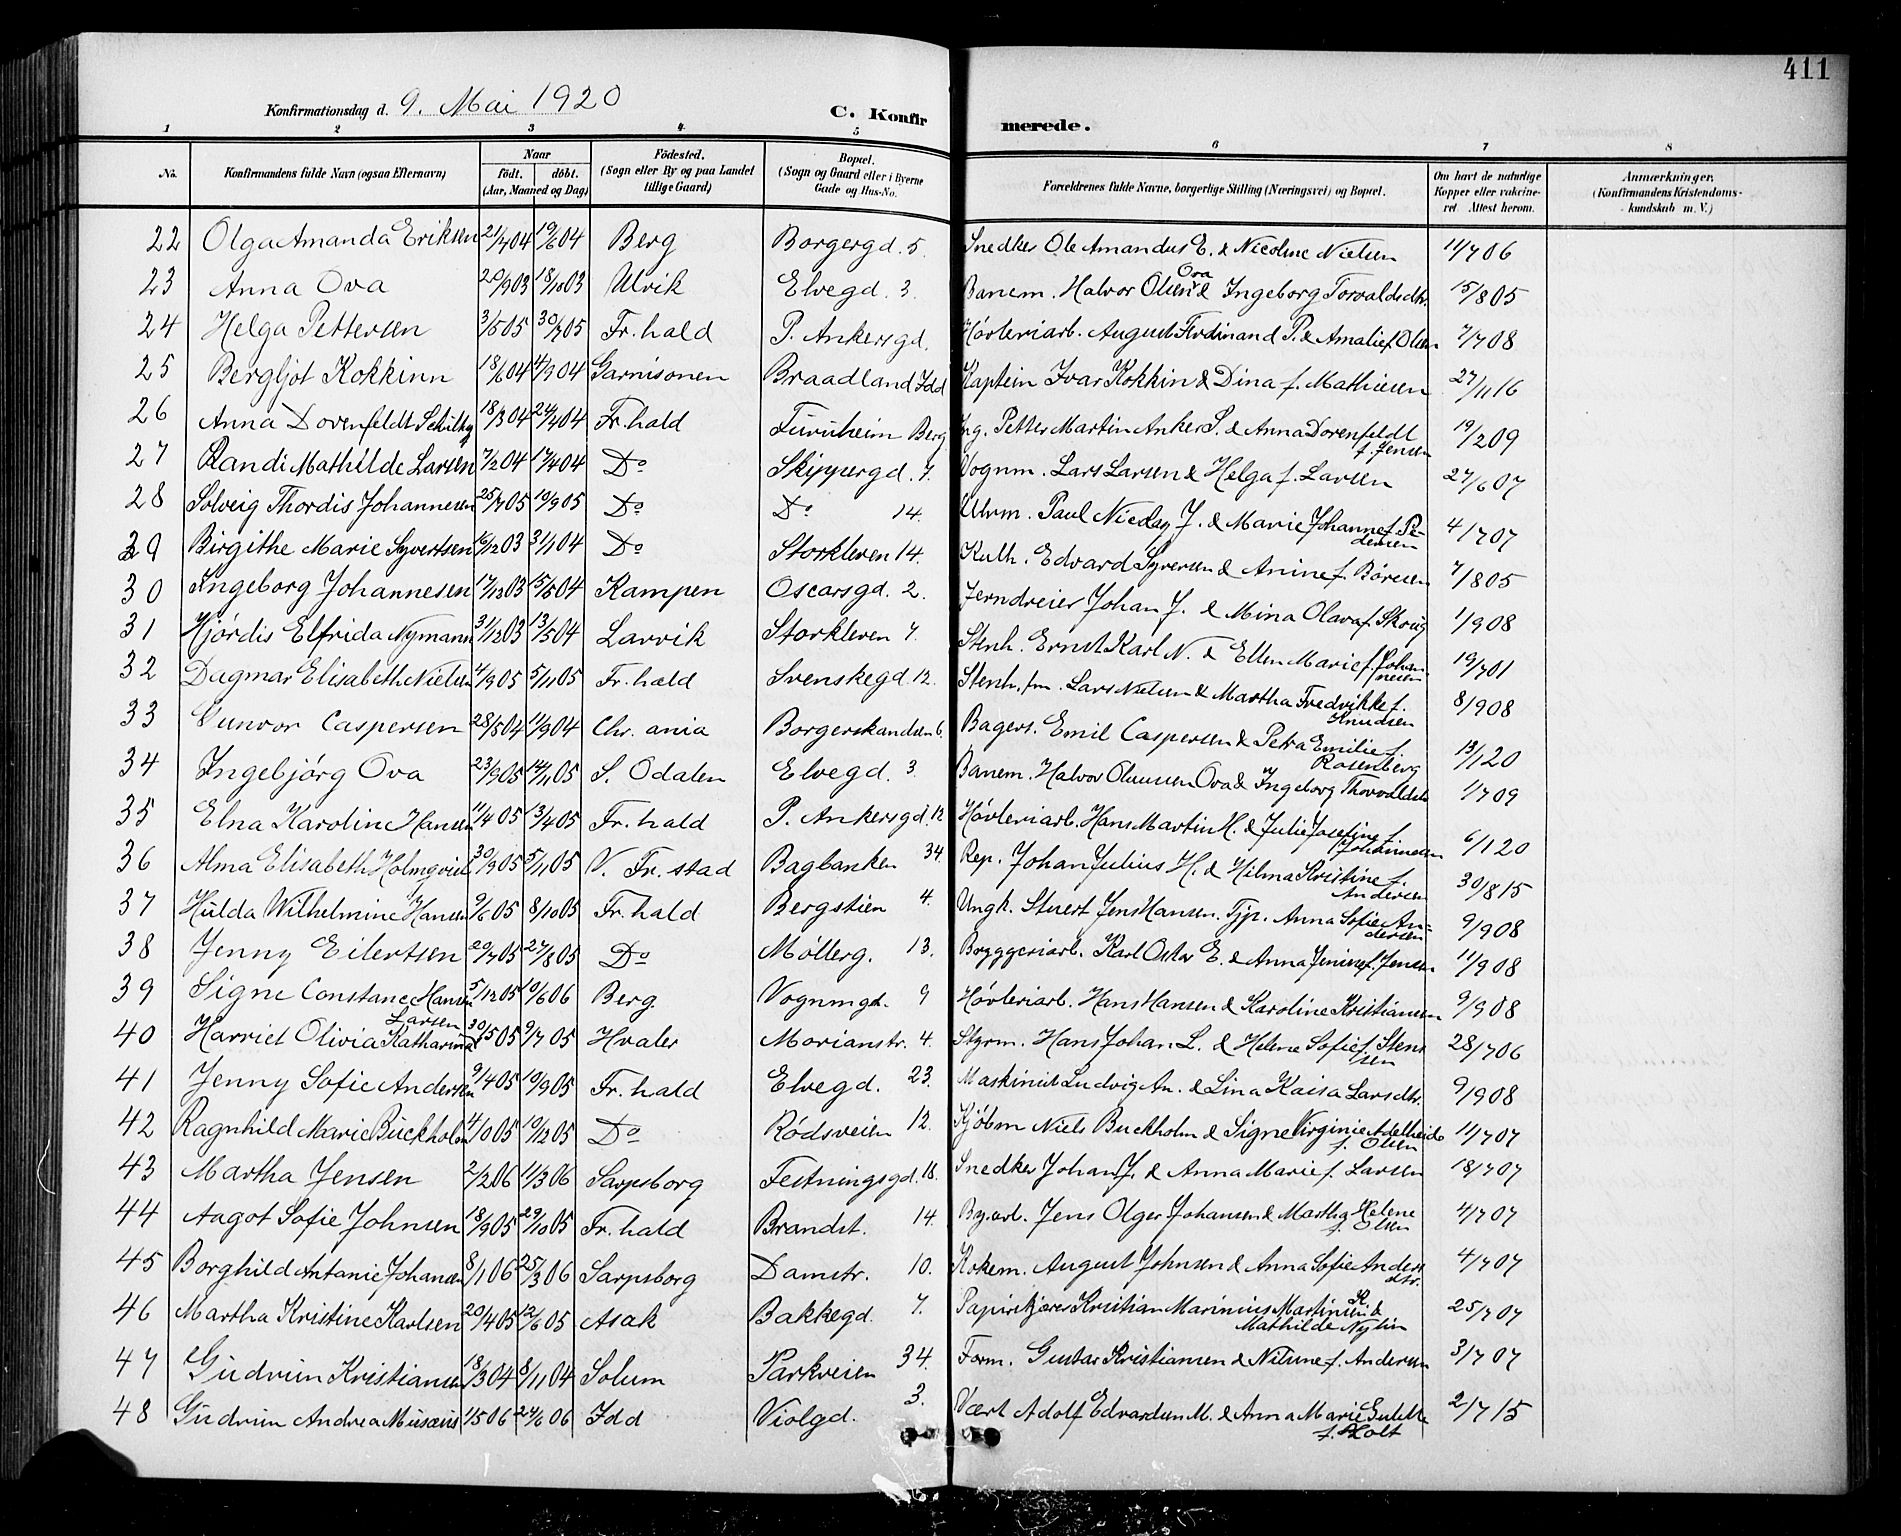 411
Konfirmationsdag d. 9. Mai 1920 C. Konfirmerede.
1 2 3 4 5 6 7 8
No. Konfirmandens fulde Navn (ogsaa Efternavn) Naar født. døbt. (Aar, Maaned og Dag) Fødested. (Sogn eller By og paa Landet tillige Gaard) Bopæl. (Sogn og Gaard eller i Byerne Gade og Hus-No. Forældrenes fulde Navne, borgerlige Stilling (Næringsvei) og Bopæl. Om havt de naturlige Kopper eller vakcineret. Attest herom. Anmærkninger. (Konfirmandens Kristendomskundskab m. V.)
22 Olga Amanda Eriksen 21/7 04 19/6 04 Berg Borgergd. 5. Snedker Ole Amandus E. & Nicoline Nielsen 11/7 06
23 Anna Ova 20/9 03 18/10 03 Ulvik Elvegd. 3. Banem. Halvor Olsen Ova & Ingeborg Torvaldsdtr. 15/8 05
24 Helga Pettersen 3/5 05 30/7 05 Fr. hald P. Ankersgd. Høvleriarb. August Ferdinand P. & Amalie f. Olsen 7/7 08
25 Bergljot Kokkinn 18/6 04 4/9 04 Garnisonen Braadland Idd Kaptein Ivar Kokkin & Dina f. Mathiesen 27/11 16
26 Anna Dovenfeldt 18/3 04 24/4 04 Fr. hald Furuheim Berg Ing. Petter Martin Anker S. & Anna Dorenfeldt f. Jensen 19/2 09
27 Randi Mathilde Larsen 7/2 04 17/4 04 Do Skippergd. 7. Vognm. Lars Larsen & Helga f. Larsen 27/6 07
28 Solveig Thordis Johannesen 25/7 05 10/9 05 Do Do 14. Uhrm. Paul Nicolay J. & Marie Johanne f. Pedersen 4/7 07
29 Birgithe Marie Syvertsen 16/12 03 3/1 04 Do Storkleven 14. Kulh. Edvard Syversen & Anine f. Børsen 7/8 05
30 Ingeborg Johannesen 17/12 03 15/5 04 Kampen Oscarsgd. 2. Jerndreier Johan J. & Mina Olava f. Skoug 1/9 08
31 Hjørdis Elfrida Nymann 31/12 03 13/5 04 Larvik Storkleven 7. Stenh. Ernst Karl N. & Ellen Marie f. Johannesen 19/7 01
32 Dagmar Elisabeth Nielsen 4/9 05 5/11 05 Fr. hald Svenskegd. 12. Stenh. fm. Lars Nielsen & Martha Fredrikke f. Knudsen 8/9 08
33 Gunvor Caspersen 28/5 04 11/9 04 Chr. ania Borgerskandsen 6. Bagers. Emil Caspersen & Petra Emilie f. Rosenberg 13/1 20
34 Ingebjørg Ova 23/9 05 14/11 05 S. Odalen Elvegd. 3 Banem. Halvor Olaussen Ova & Ingeborg Thorvaldsd. 1/7 09
35 Elna Karoline Hansen 11/4 05 3/4 05 Fr. hald P. Ankersgd. 12 Høvleriarb. Hans Martin H. & Julie Josefine f. Johannesen 6/1 20
36 Alma Elisabeth Holmqvist 30/9 05 5/11 05 V. Fr. stad Bagbanken 34. Rep. Johan Julius H. & Hilma Kristine f. Andersen 30/8 15
37 Hulda Wilhelmine Hansen 9/6 05 8/10 05 Fr. hald Bergstien 4. Ungk. Stuert Jens Hansen. Tjp. Anna Sofie Andersen 9/9 08
38 Jenny Eilertsen 20/7 05 27/8 05 Do Møllerg. 13. Bryggeriarb. Karl Oskar E. & Anna Jenine f. Jensen 11/9 08
39 Signe Constance Hansen 5/12 05 10/6 06 Berg Vognmgd. 9 Høvleriarb. Hans Hansen & Karoline Kristiansen 9/9 08
40 Harriet Olivia Katharina Larsen 30/5 05 9/7 05 Hvaler Morianstr. 4. Styrm. Hans Johan L. & Helene Sofie f. Stensen 28/7 06
41 Jenny Sofie Andersen 9/4 05 10/9 05 Fr. hald Elvegd. 23. Maskinist Ludvig An. & Lina Kaisa Larsdtr. 9/9 08
42 Ragnhild Marie Buckholm 4/10 05 10/12 05 Do Rødsveien 12. Kjøbm Niels Buckholm & Signe Virginie Adelheid f. Olsen 11/7 07
43 Martha Jensen 2/2 06 11/3 06 Sarpsborg Festningsgd. 18. Snedker Johan J. & Anna Marie f. Larsen 18/7 07
44 Aagot Sofie Johnsen 18/9 05 29/10 05 Fr. hald Brandst. 14. Byarb. Jens Olger Johansen & Martha Helene f. Olsen 4/7 07
45 Borghild Antanie Johansen 8/1 06 25/3 06 Sarpsborg Damstr. 10. Kokem. August Johnsen & Anna Sofie Andersdtr. 4/7 07
46 Martha Kristine Karlsen 20/4 05 12/6 05 Asak Bakkegd. 7. Papirkjører Kristian Marinius Martinsen K. & Mathilde Nylin 25/7 07
47 Gudrun Kristiansen 18/3 04 8/11 04 Solum Parkveien 34. Form. Gustav Kristiansen & Nilsine f. Andersen 3/7 07
48 Gudrun Andrea Musæus 1/5 06 24/6 06 Idd Violgd. 3. Vært Adolf Edvardsen M. & Anna Marie f. Holt 2/7 15